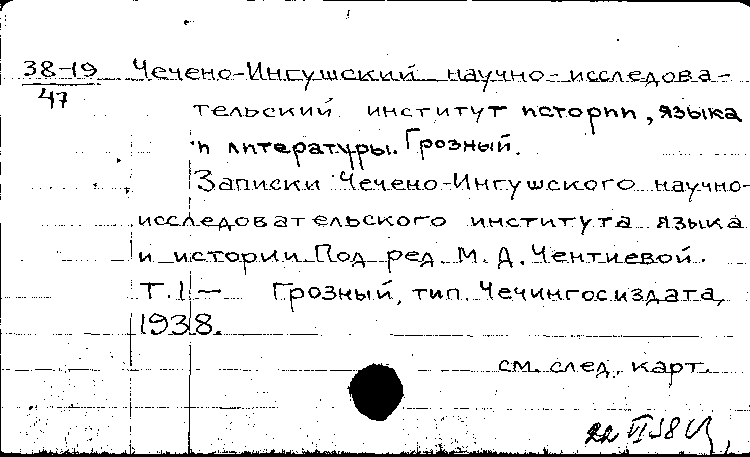 38-19 Чечено-Ингушский научно-исследова-
47
тельский институт истории, языка
и литературы. Грозный.
Записки Чечено-Ингушского научно-
исследовательского института языка
и истории. Под ред М. Д. Чентиевой.
Т. 1 — Грозный, тип. Чечингосиздата,
1938.
см. след. карт.
22 VI 58